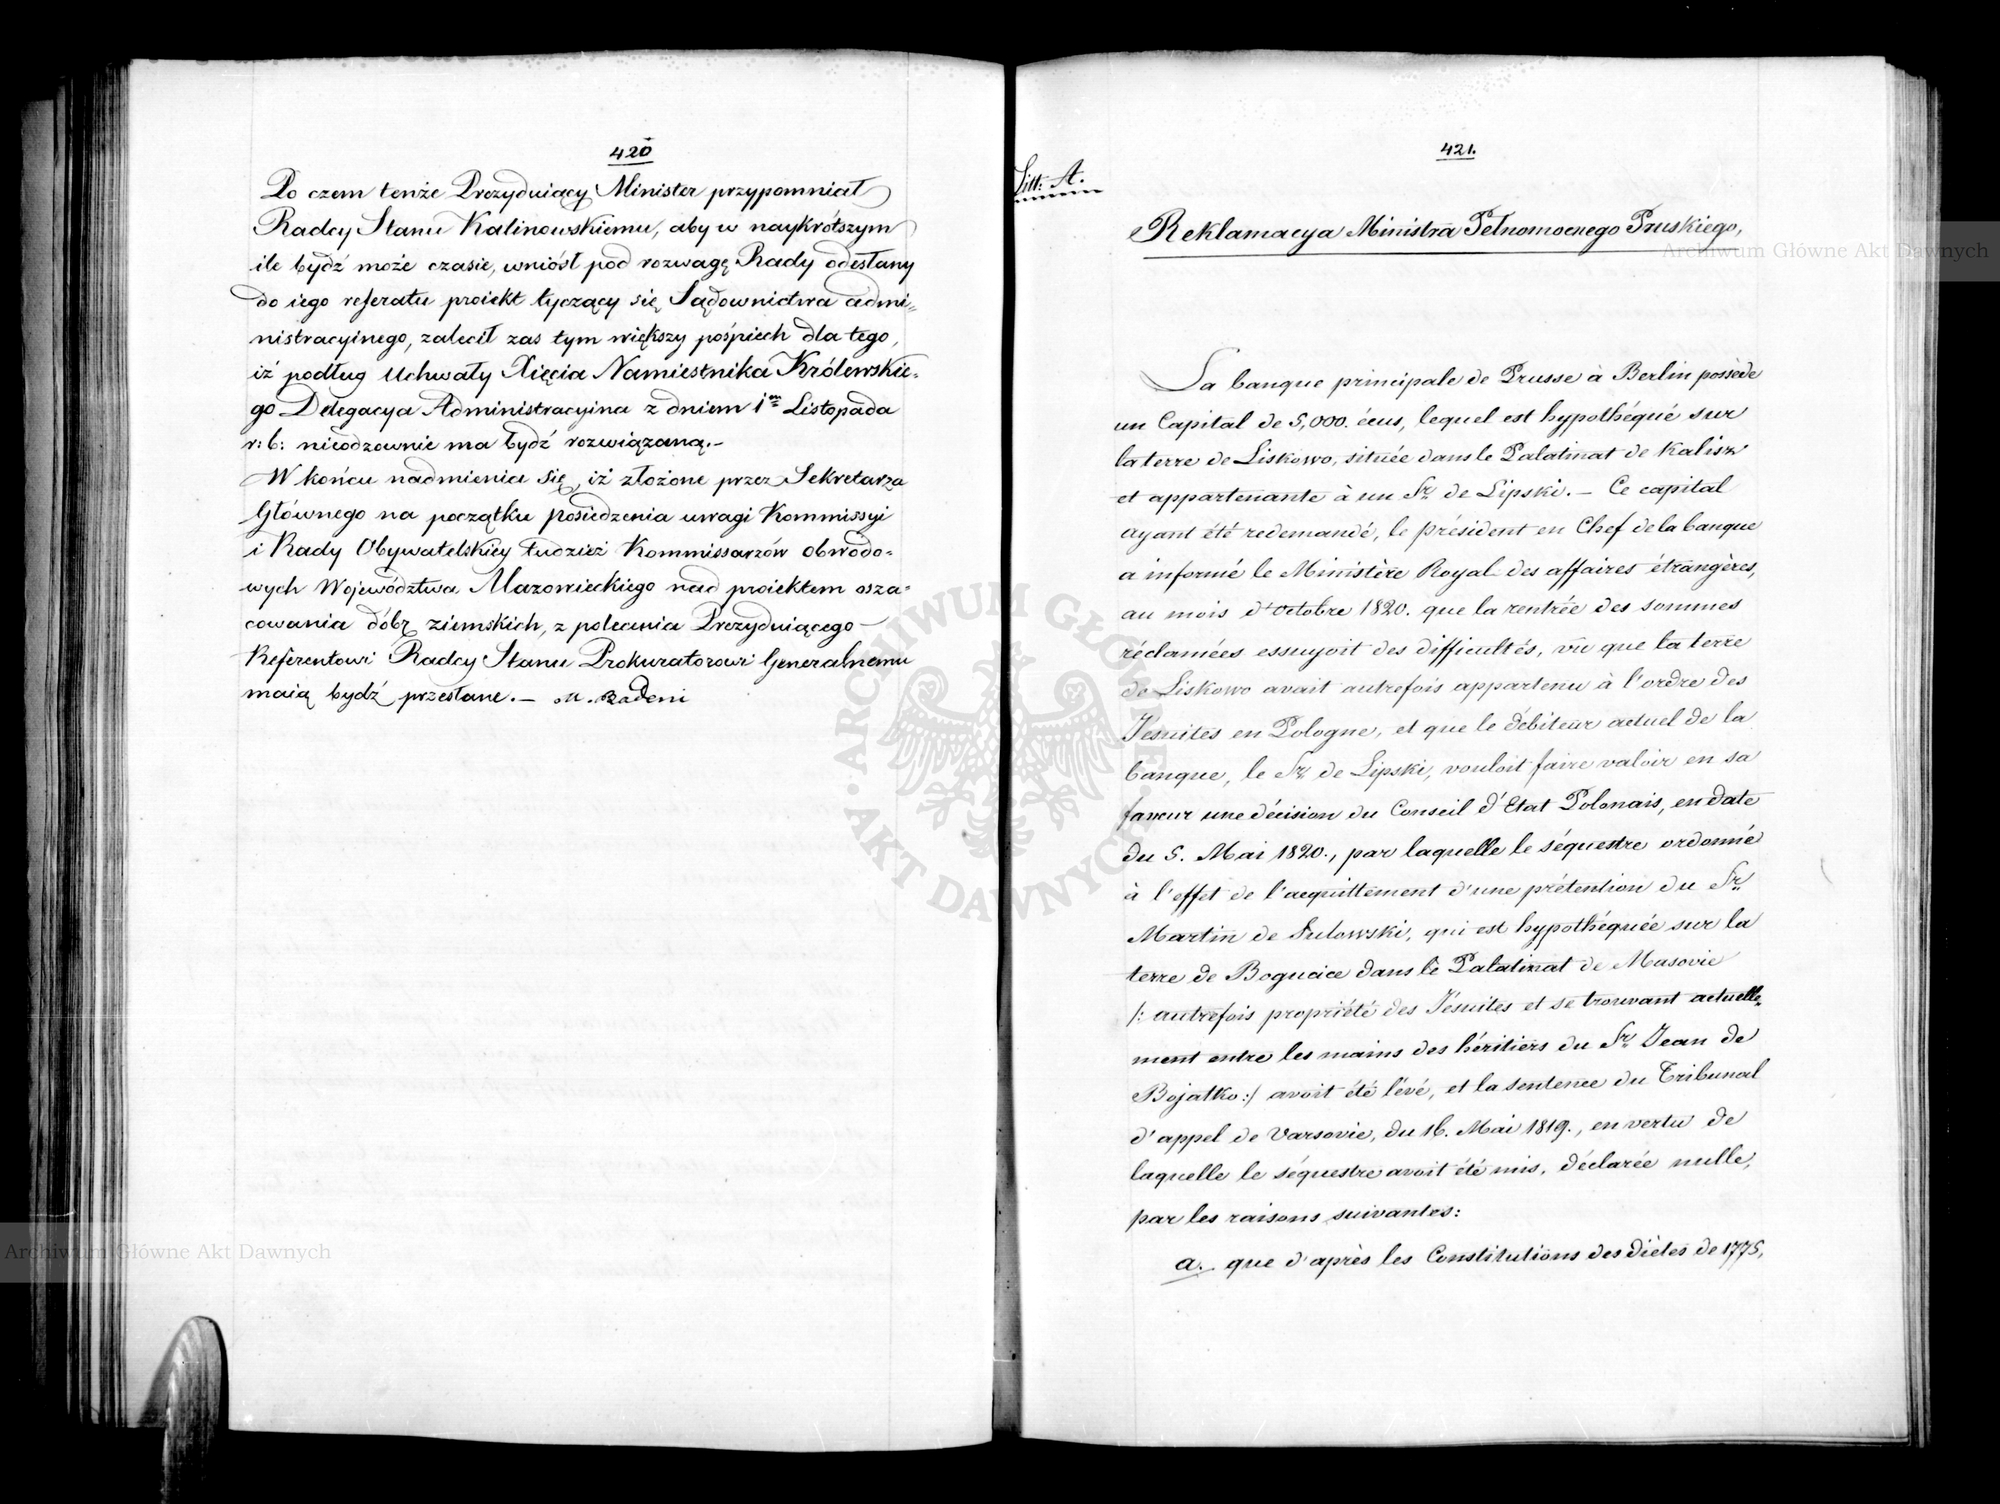 420
Po czem tenże Prezyduiący Minister przypomniał
Radcy Stanu Kalinowskiemu, aby w naykrótszym
ile bydź może czasie, wniósł pod rozwagę Rady odesłany
do iego referatu proiekt tyczący się Sądownictwa admi-
nistracyinego, zalecił zas tym większy pośpiech dla tego,
iż podług Uchwały Xięcia Namiestnika Królewskie-
go Delegacya Administracyina z dniem 1m Listopada
r: b: nieodzownie ma bydź rozwiązaną.-
W końcu nadmienia się, iż złożone przez Sekretarza
Głównego na początku posiedzenia uwagi Kommissyi
i Rady Obywatelskiey tudzież Kommissarzów obwodo-
wych Województwa Mazowieckiego nad proiektem osza-
cowania dóbr ziemskich, z polecenia Prezyduiącego
Referentowi Radcy Stanu Prokuratorowi Generalnemu
maią bydź przesłane.- M. Badeni
421.
Litt: A.
Reklamacya Ministra Pełnomocnego Pruskiego,
La banque principale de Prusse à Berlin possède
un Capital de 5,000. écus, lequel est hypothéqué sur
la terre de Liskowo, située dans le Palatinat de Kalisz
et appartenante à un Sr. de Lipski.- Ce capital
ayant été redemandé, le président en Chef de la banque
a informé le Ministère Royal des affaires étrangères,
au mois d'octobre 1820. que la rentrée des sommes
réclamées essuyoit des difficultés, vu que la terre
de Liskowo avait autrefois appartenu à l'ordre des
Jesuites en Pologne, et que le débiteur actuel de la
banque, le Sr. de Lipski, vouloit faire valoir en sa
faveur une décision du Conseil d'Etat Polonais, en date
du 5. Mai 1820., par laquelle le séquestre ordonné
à l'effet de l'acquittement d'une prétention du Sr.
Martin de Sulowski, qui est hypothéquée sur la
terre de Bogucice dans le Palatinat de Masovie
/: autrefois propriété des Jesuites et se trouvant actuelle-
ment entre les mains des héritiers du Sr. Jean de
Bojatko :/ avoit été lévé, et la sentence du Tribunal
d'appel de Varsovie, du 16. Mai 1819., en vertu de
laquelle le séquestre avoit été mis, déclarée nulle,
par les raisons suivantes:
a. que d'après les Constitutions des diètes de 1775,
Archiwum Główne Akt Dawnych
Archiwum Główne Akt Dawnych
ARCHIWUM GŁÓWNE AKT DAWNYCH